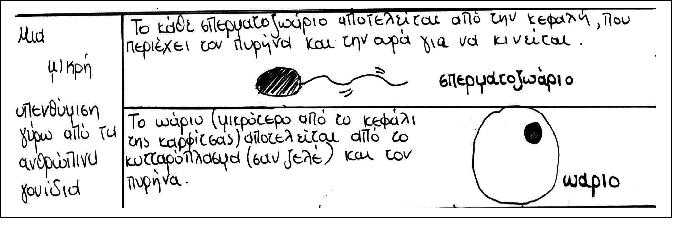 Μια
μικρή
υπενθύμιση
γύρω από τα
ανθρώπινα
γονίδια
Το κάθε σπερματοζωάριο αποτελείται από την κεφαλή, που
περιέχει τον πυρήνα και την ουρά για να κινείται.
σπερματοζωάριο
Το ωάριο (μικρότερο από το κεφάλι
της καρφίτσας) αποτελείται από το
κυτταρόπλασμα (σαν ζελέ) και τον
πυρήνα.
ωάριο